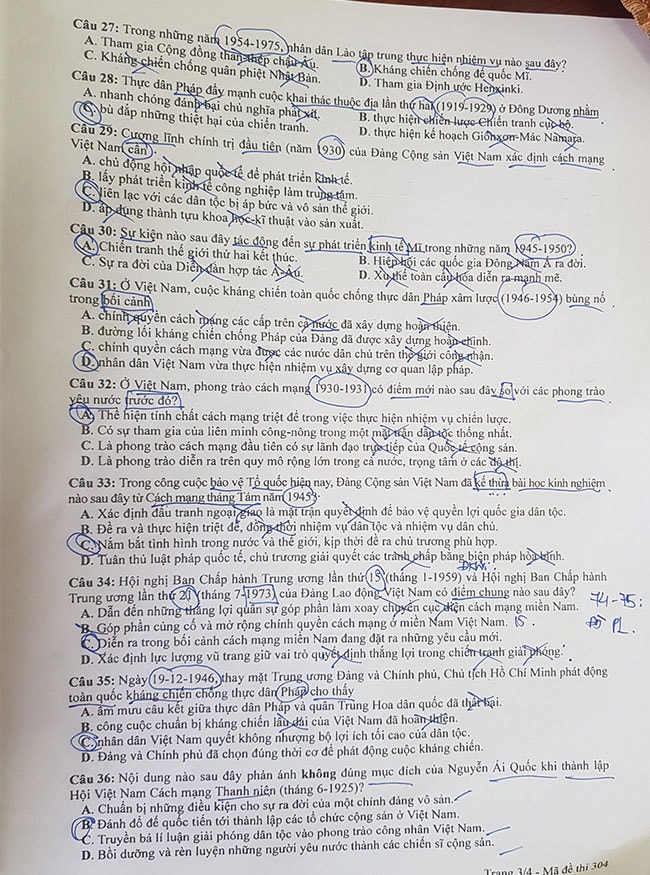 Câu 27: Trong những năm 1954-1975, nhân dân Lào tập trung thực hiện nhiệm vụ nào sau đây?
A. Tham gia Cộng đồng than-thép châu Âu. B. Kháng chiến chống đế quốc Mĩ.
C. Kháng chiến chống quân phiệt Nhật Bản. D. Tham gia Định ước Henxinki.
Câu 28: Thực dân Pháp đẩy mạnh cuộc khai thác thuộc địa lần thứ hai (1919-1929) ở Đông Dương nhằm
A. nhanh chóng đánh bại chủ nghĩa phát xít. B. thực hiện chiến lược Chiến tranh cục bộ.
C. bù đắp những thiệt hại của chiến tranh. D. thực hiện kế hoạch Giônxơn-Mác Namara.
Câu 29: Cương lĩnh chính trị đầu tiên (năm 1930) của Đảng Cộng sản Việt Nam xác định cách mạng
Việt Nam cần
A. chủ động hội nhập quốc tế để phát triển kinh tế.
B. lấy phát triển kinh tế công nghiệp làm trung tâm.
C. liên lạc với các dân tộc bị áp bức và vô sản thế giới.
D. áp dụng thành tựu khoa học-kĩ thuật vào sản xuất.
Câu 30: Sự kiện nào sau đây tác động đến sự phát triển kinh tế Mĩ trong những năm 1945-1950?
A. Chiến tranh thế giới thứ hai kết thúc. B. Hiệp hội các quốc gia Đông Nam Á ra đời.
C. Sự ra đời của Diễn đàn hợp tác Á-Âu. D. Xu thế toàn cầu hóa diễn ra mạnh mẽ.
Câu 31: Ở Việt Nam, cuộc kháng chiến toàn quốc chống thực dân Pháp xâm lược (1946-1954) bùng nổ
trong bối cảnh
A. chính quyền cách mạng các cấp trên cả nước đã xây dựng hoàn thiện.
B. đường lối kháng chiến chống Pháp của Đảng đã được xây dựng hoàn chỉnh.
C. chính quyền cách mạng vừa được các nước dân chủ trên thế giới công nhận.
D. nhân dân Việt Nam vừa thực hiện nhiệm vụ xây dựng cơ quan lập pháp.
Câu 32: Ở Việt Nam, phong trào cách mạng 1930-1931 có điểm mới nào sau đây so với các phong trào
yêu nước trước đó?
A. Thể hiện tính chất cách mạng triệt để trong việc thực hiện nhiệm vụ chiến lược.
B. Có sự tham gia của liên minh công-nông trong một mặt trận dân tộc thống nhất.
C. Là phong trào cách mạng đầu tiên có sự lãnh đạo trực tiếp của Quốc tế cộng sản.
D. Là phong trào diễn ra trên quy mô rộng lớn trong cả nước, trọng tâm ở các đô thị.
Câu 33: Trong công cuộc bảo vệ Tổ quốc hiện nay, Đảng Cộng sản Việt Nam đã kế thừa bài học kinh nghiệm
nào sau đây từ Cách mạng tháng Tám năm 1945?
A. Xác định đấu tranh ngoại giao là mặt trận quyết định để bảo vệ quyền lợi quốc gia dân tộc.
B. Đề ra và thực hiện triệt để, đồng thời nhiệm vụ dân tộc và nhiệm vụ dân chủ.
C. Nắm bắt tình hình trong nước và thế giới, kịp thời đề ra chủ trương phù hợp.
D. Tuân thủ luật pháp quốc tế, chủ trương giải quyết các tranh chấp bằng biện pháp hòa bình.
Câu 34: Hội nghị Ban Chấp hành Trung ương lần thứ 15 (tháng 1-1959) và Hội nghị Ban Chấp hành
Trung ương lần thứ 21 (tháng 7-1973) của Đảng Lao động Việt Nam có điểm chung nào sau đây? 74-75:
A. Dẫn đến những thắng lợi quân sự góp phần làm xoay chuyển cục diện cách mạng miền Nam.
B. Góp phần củng cố và mở rộng chính quyền cách mạng ở miền Nam Việt Nam. 15. PL.
C. Diễn ra trong bối cảnh cách mạng miền Nam đang đặt ra những yêu cầu mới.
D. Xác định lực lượng vũ trang giữ vai trò quyết định thắng lợi trong chiến tranh giải phóng.
Câu 35: Ngày 19-12-1946, thay mặt Trung ương Đảng và Chính phủ, Chủ tịch Hồ Chí Minh phát động
toàn quốc kháng chiến chống thực dân Pháp cho thấy
A. âm mưu câu kết giữa thực dân Pháp và quân Trung Hoa dân quốc đã thất bại.
B. công cuộc chuẩn bị kháng chiến lâu dài của Việt Nam đã hoàn thiện.
C. nhân dân Việt Nam quyết không nhượng bộ lợi ích tối cao của dân tộc.
D. Đảng và Chính phủ đã chọn đúng thời cơ để phát động cuộc kháng chiến.
Câu 36: Nội dung nào sau đây phản ánh không đúng mục đích của Nguyễn Ái Quốc khi thành lập
Hội Việt Nam Cách mạng Thanh niên (tháng 6-1925)?
A. Chuẩn bị những điều kiện cho sự ra đời của một chính đảng vô sản.
B. Đánh đổ đế quốc tiến tới thành lập các tổ chức cộng sản ở Việt Nam.
C. Truyền bá lí luận giải phóng dân tộc vào phong trào công nhân Việt Nam.
D. Bồi dưỡng và rèn luyện những người yêu nước thành các chiến sĩ cộng sản.
Trang 3/4 - Mã đề thi 304